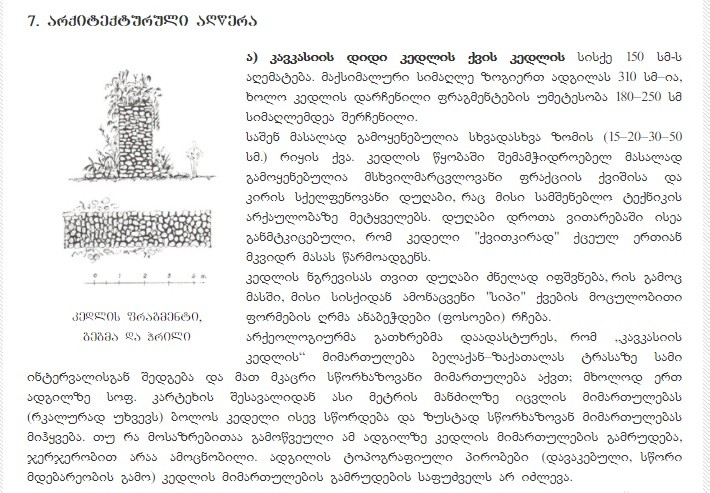 7. არქიტექტურული აღწერა
ა) კავკასიის დიდი კედლის ქვის კედლის სისქე 150 სმ-ს
აღემატება. მაქსიმალური სიმაღლე ზოგიერთ ადგილას 310 სმ–ია,
ხოლო კედლის დარჩენილი ფრაგმენტების უმეტესობა 180–250 სმ
სიმაღლემდეა შერჩენილი.
საშენ მასალად გამოყენებულია სხვადასხვა ზომის (15–20–30–50
სმ.) რიყის ქვა. კედლის წყობაში შემამჭიდროებელ მასალად
გამოყენებულია მსხვილმარცვლოვანი ფრაქციის ქვიშისა და
კირის სქელფენოვანი დუღაბი, რაც მისი სამშენებლო ტექნიკის
არქაულობაზე მეტყველებს. დუღაბი დროთა ვითარებაში ისეა
განმტკიცებული, რომ კედელი "ქვითკირად" ქცეულ ერთიან
მკვიდრ მასას წარმოადგენს.
კედლის ნგრევისას თვით დუღაბი ძნელად იფშვნება, რის გამოც
მასში, მისი სისქიდან ამონაცვენი "სიპი" ქვების მოცულობითი
ფორმების ღრმა ანაბეჭდები (ფოსოები) რჩება.
არქეოლოგიურმა გათხრებმა დაადასტურეს, რომ „კავკასიის
კედლის“ მიმართულება ბელაქან–ზაქათალას ტრასაზე სამი
ინტერვალისგან შედგება და მათ მკაცრი სწორხაზოვანი მიმართულება აქვთ; მხოლოდ ერთ
ადგილზე სოფ. კარტეხის შესავალიდან ასი მეტრის მანძილზე იცვლის მიმართულებას
(რკალურად უხვევს) ბოლოს კედელი ისევ სწორდება და ზუსტად სწორხაზოვან მიმართულებას
მიჰყვება. თუ რა მოსაზრებითაა გამოწვეული ამ ადგილზე კედლის მიმართულების გამრუდება,
ჯერჯერობით არაა ამოცნობილი. ადგილის ტოპოგრაფიული პირობები (დავაკებული, სწორი
მდებარეობის გამო) კედლის მიმართულების გამრუდების საფუძველს არ იძლევა.
0 1 2 3
კედლის ფრაგმენტი,
გეგმა და ჭრილი